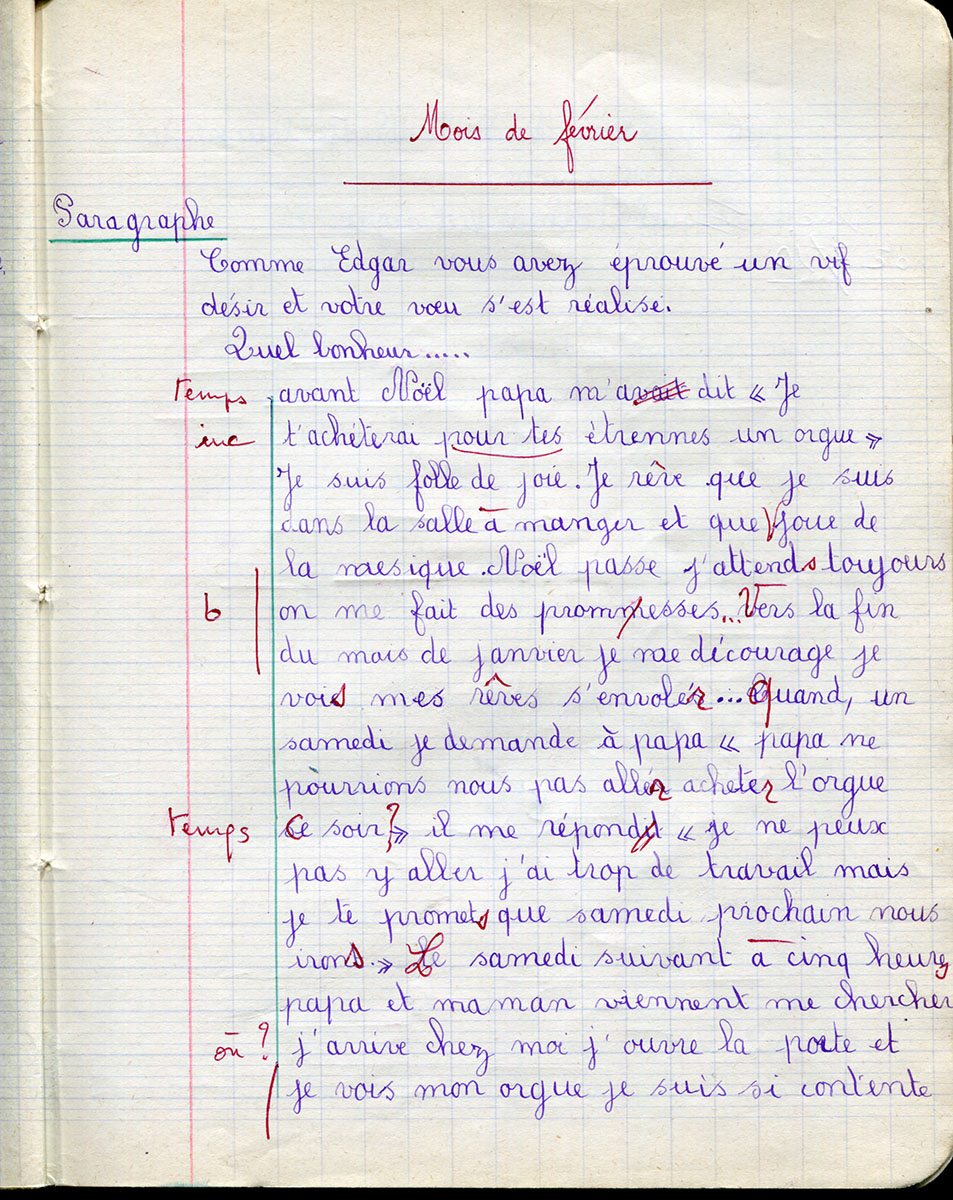 Mois de février
Paragraphe
Comme Edgar vous avez éprouvé un vif
désir et votre vœu s'est réalisé.
Quel bonheur.....
temps avant Noël papa m'avait dit « Je
inc t'achéterai pour tes étrennes un orgue »
Je suis folle de joie. Je rêve que je suis
dans la salle à manger et que joue de
la musique. Noël passe j'attends toujours
b on me fait des prommesses... Vers la fin
du mois de janvier je me décourage je
vois mes rêves s'envoler... Quand, un
samedi je demande à papa « papa ne
pourrions nous pas aller acheter l'orgue
temps Ce soir ? » il me répondit « je ne peux
pas y aller j'ai trop de travail mais
je te promets que samedi prochain nous
irons. » Le samedi suivant à cinq heures
papa et maman viennent me chercher
où ? j'arrive chez moi j'ouvre la porte et
je vois mon orgue je suis si contente